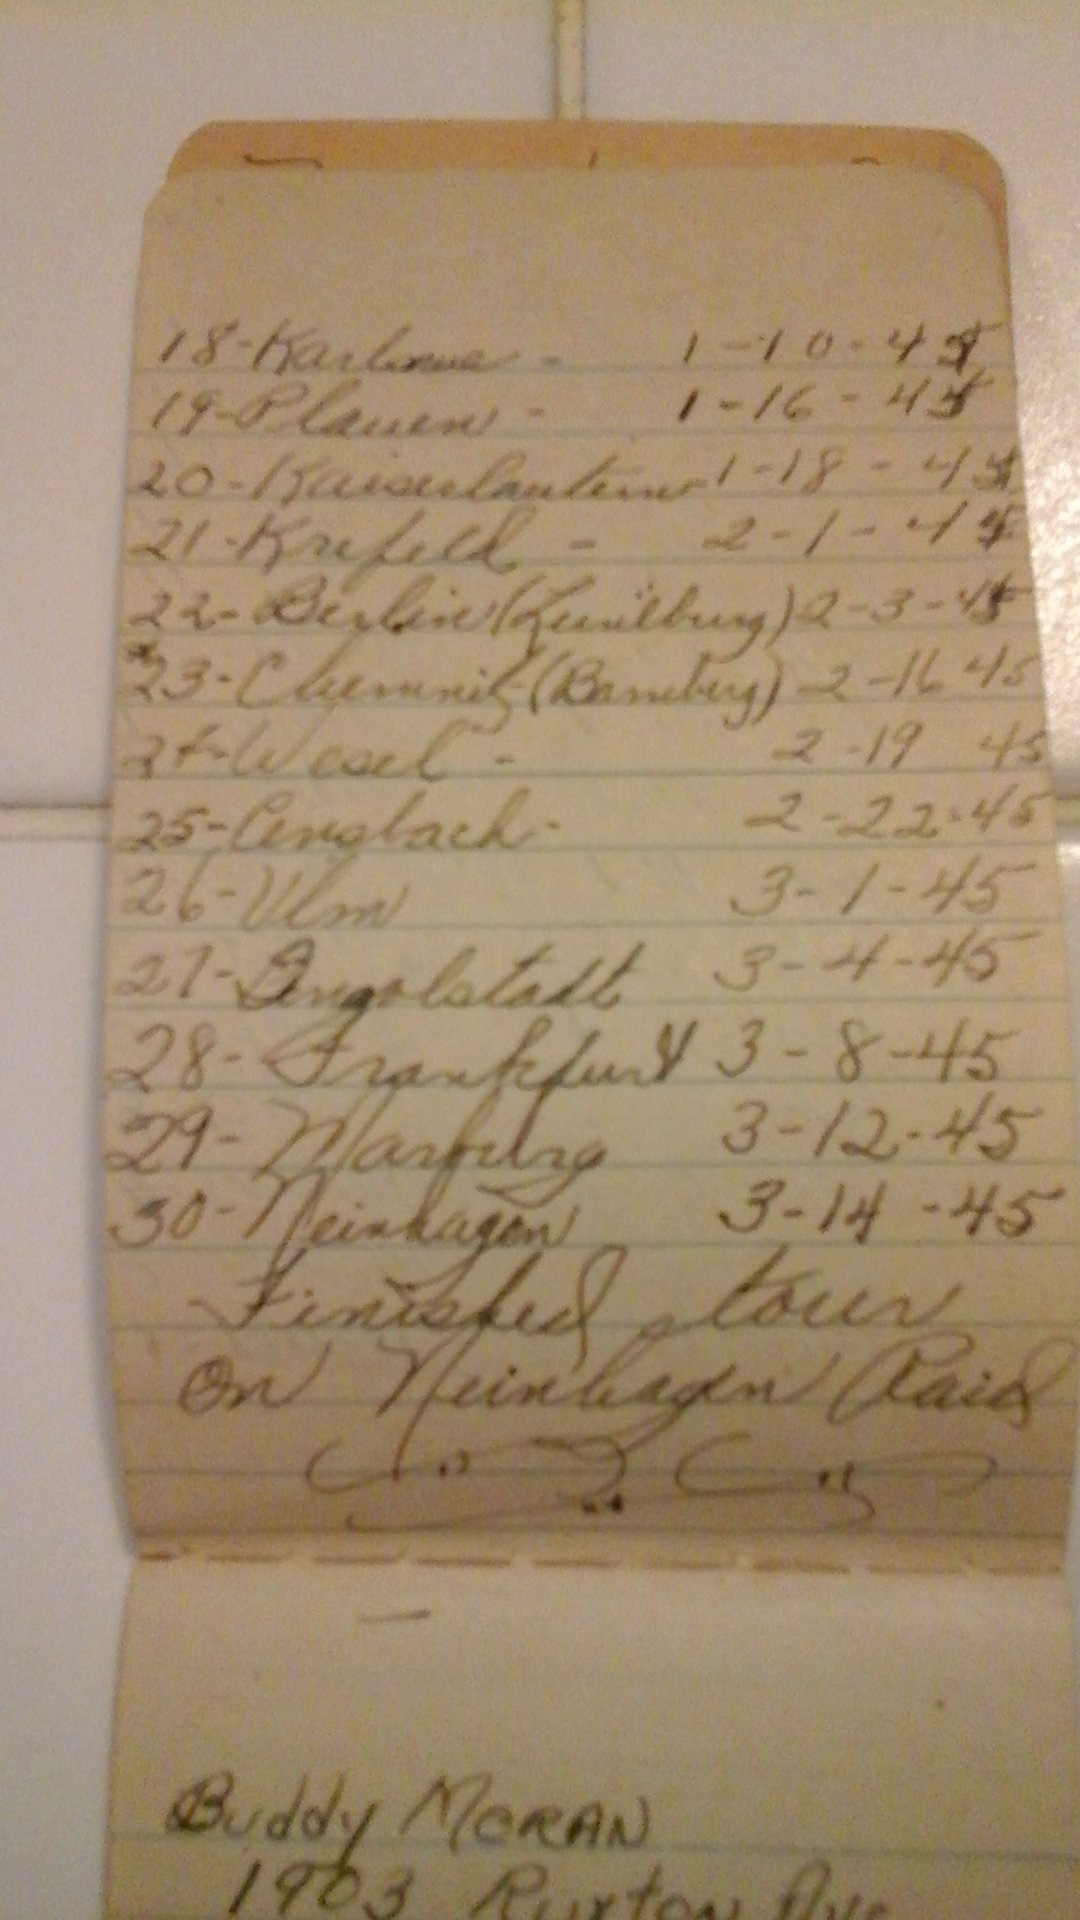 18-Karlsrue - 1-10-45
19-Plauen - 1-16-45
20-Kaiserlautern 1-18-45
21-Krefeld - 2-1-45
22-Berlin 2-3-45
*23-Chemnitz (Bamberg) 2-16 45
24-Wesel - 2-19 45
25-Ansbach- 2-22-45
26-Ulm 3-1-45
27-Ingolstadt 3-4-45
28-Frankfurt 3-8-45
29-Marburg 3-12-45
30-Neinhagen 3-14-45
Finished tour
on Neinhagen Raid
Buddy MORAN
1903 Ruxton Ave